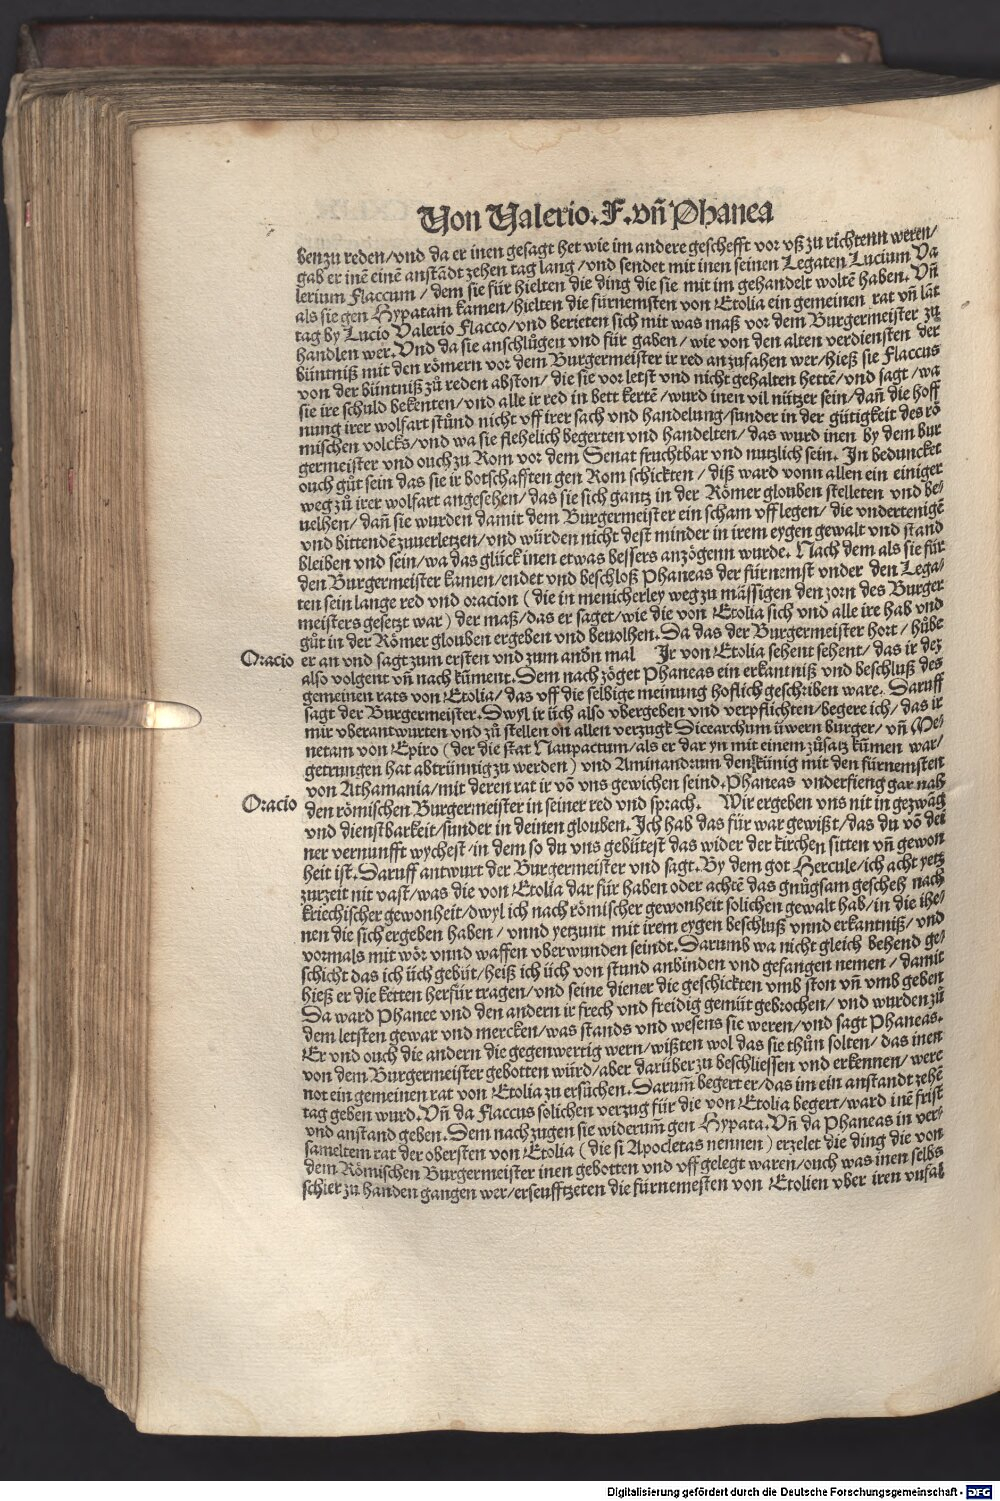 Von Valerio. F. vñ Phanea
ben zu reden/vnd da er inen gesagt het wie im andere geschefft vor vß zu richtenn weren/
gab er inẽ einẽ anstãdt zehen tag lang/vnd sendet mit inen seinen Legaten Lucium Va
lerium Flaccum/dem sie für hielten die ding die sie mit im gehandelt woltẽ haben. Vñ
als sie gen Hypatam kamen/hielten die fürnemsten von Etolia ein gemeinen rat vñ lãt
tag by Lucio Valerio Flacco/vnd berieten sich mit was maß vor dem Burgermeister zů
handlen wer. Vnd da sie anschlůgen vnd für gaben/wie von den alten verdiensten der
büntniß mit den römern vor dem Burgermeister ir red anzufahen wer/hieß sie Flaccus
von der büntniß zů reden abston/die sie vor letst vnd nicht gehalten hettẽ/vnd sagt/wa
sie ire schuld bekenten/vnd alle ir red in bett kertẽ/wurd inen vil nützer sein/dañ die hoff
nung irer wolfart stůnd nicht vff irer sach vnd handelung/sunder in der gütigkeit des rö
mischen volcks/vnd wa sie flehelich begerten vnd handelten/das wurd inen by dem bur
germeister vnd ouch zu Rom vor dem Senat fruchtbar vnd nutzlich sein. In beduncket
ouch gůt sein das sie ir botschafften gen Rom schickten/diß ward vonn allen ein einiger
weg zů irer wolfart angesehen/das sie sich gantz in der Römer glouben stelleten vnd be/
uelhen/dañ sie wurden damit dem Burgermeister ein scham vff legen/die vndertenigẽ
vnd bittendẽ zuuerletzen/vnd würden nicht dest minder in irem eygen gewalt vnd stand
bleiben vnd sein/wa das glück inen etwas bessers anzögenn wurde. Nach dem als sie für
den Burgermeister kamen/endet vnd beschloß Phaneas der fürnemst vnder den Lega/
ten sein lange red vnd oracion (die in menicherley weg zu mässigen den zorn des Burger
meisters gesetzt war) der maß/das er saget/wie die von Etolia sich vnd alle ire hab vnd
gůt in der Römer glouben ergeben vnd beuolhen. Da das der Burgermeister hort/hůbe
Oracio er an vnd sagt zum ersten vnd zum andñ mal Ir von Etolia sehent sehent/das ir dez
also volgent vñ nach kũment. Dem nach zöget Phaneas ein erkantniß vnd beschluß des
gemeinen rats von Etolia/das vff die selbige meinung hoflich geschriben ware. Daruff
sagt der Burgermeister. Dwyl ir üch also vbergeben vnd verpflichten/begere ich/das ir
mir vberantwurten vnd zů stellen on allen verzugk Dicearchum üwern burger/vñ Me/
netam von Epiro (der die stat Naupactum/als er dar yn mit einem zůsatz kũmen war/
getrungen hat abtrünnig zu werden) vnd Aminandrum den künig mit den fürnemsten
von Athamania/mit deren rat ir võ vns gewichen seind. Phaneas vnderfieng gar nah
Oracio den römischen Burgermeister in seiner red vnd sprach. Wir ergeben vns nit in gezwãg
vnd dienstbarkeit/sunder in deinen glouben. Ich hab das für war gewißt/das du võ dei
ner vernunfft wychest/in dem so du vns gebütest das wider der kirchen sitten vñ gewon
heit ist. Daruff antwurt der Burgermeister vnd sagt. By dem got Hercule/ich acht yetz
zurzeit nit vast/was die von Etolia dar für haben oder achtẽ das gnůgsam gescheh nach
kriechischer gewonheit/dwyl ich nach römischer gewonheit solichen gewalt hab/in die ihe/
nen die sich ergeben haben/vnnd yetzunt mit irem eygen beschluß vnnd erkantniß/vnd
vormals mit wör vnnd waffen vberwunden seindt. Darumb wa nicht gleich behend ge/
schicht das ich üch gebüt/heiß ich üch von stund anbinden vnd gefangen nemen/damit
hieß er die ketten herfür tragen/vnd seine diener die geschickten vmb ston vñ vmb geben
Da ward Phanee vnd den andern ir frech vnd freidig gemüt gebrochen/vnd wurden zů
dem letsten gewar vnd mercken/was stands vnd wesens sie weren/vnd sagt Phaneas.
Er vnd ouch die andern die gegenwertig wern/wißten wol das sie thůn solten/das inen
von dem Burgermeister gebotten würd/aber darüber zu beschliessen vnd erkennen/were
not ein gemeinen rat von Etolia zu ersůchen. Darum̃ begert er/das im ein anstandt zehẽ
tag geben wurd. Vñ da Flaccus solichen verzug für die von Etolia begert/ward inẽ frist
vnd anstand geben. Dem nach zugen sie widerum̃ gen Hypata. Vñ da Phaneas in ver/
sameltem rat der obersten von Etolia (die si Apocletas nennen) erzelet die ding die von
dem Römischen Burgermeister inen gebotten vnd vff gelegt waren/ouch was inen selbs
schier zu handen gangen wer/erseufftzeten die fürnemesten von Etolien vber iren vnfal
Digitalisierung gefördert durch die Deutsche Forschungsgemeinschaft - DFG